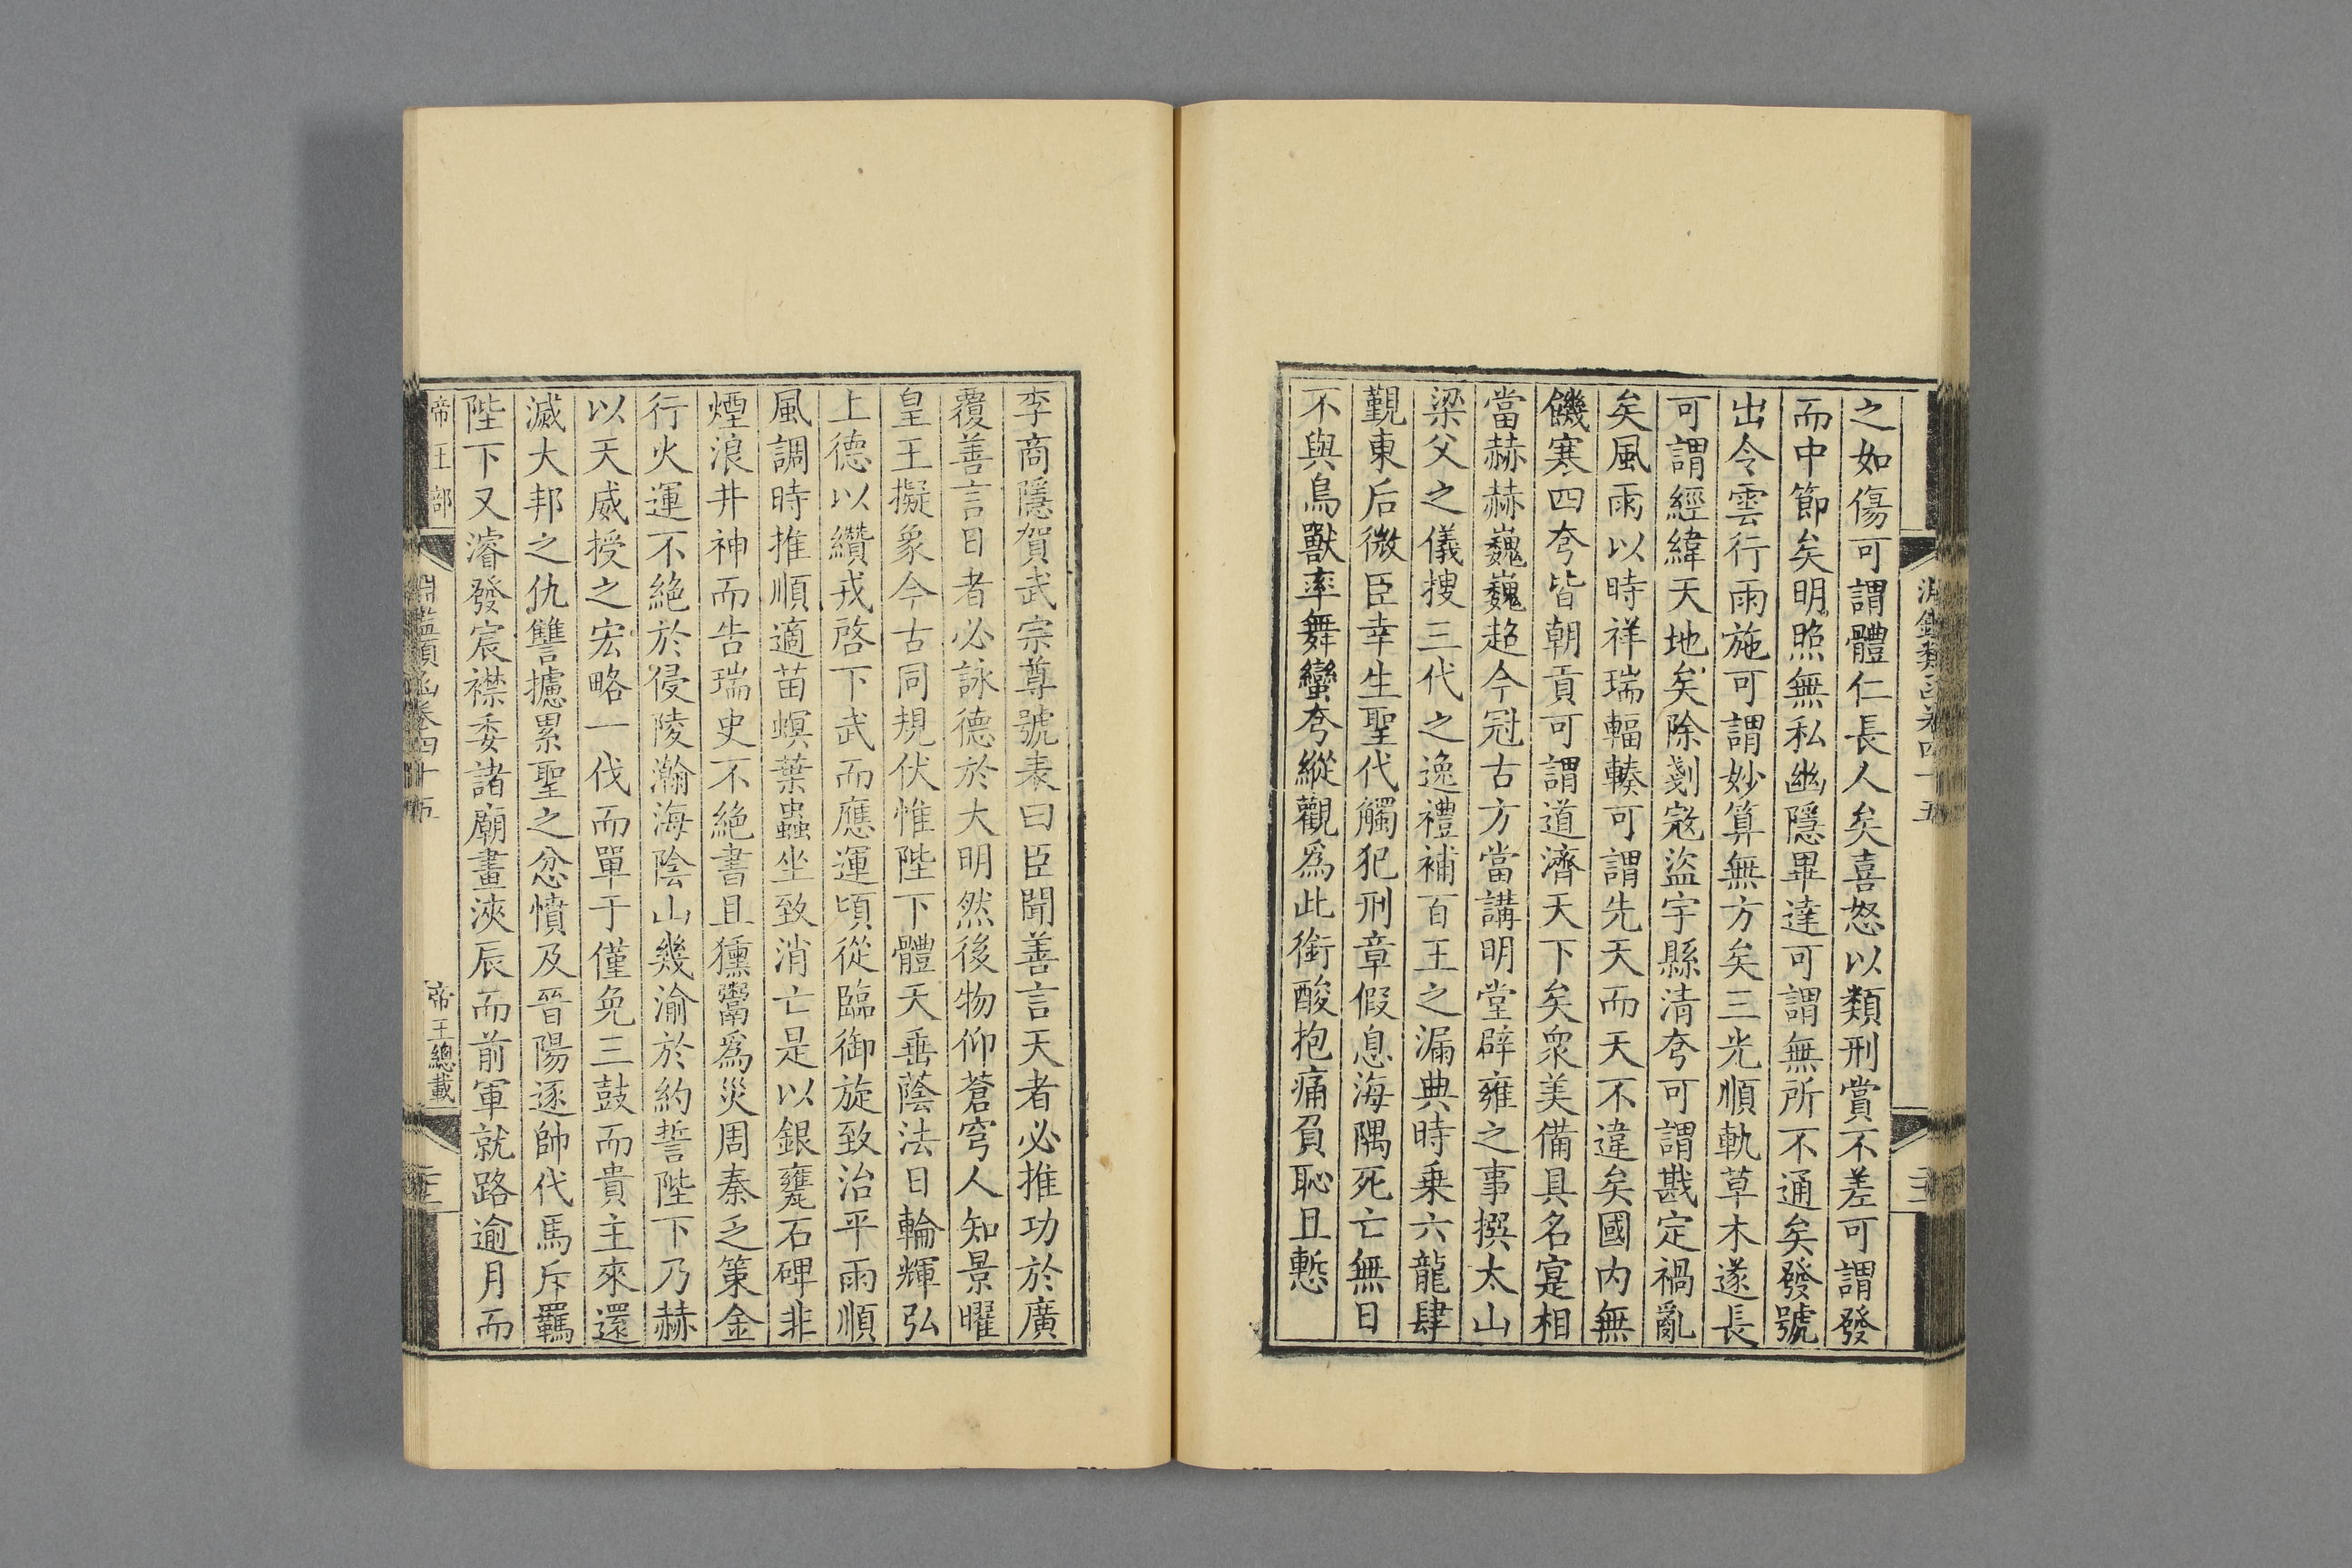 之如傷可謂體仁長人矣喜怒以類刑賞不差可謂發
而中節矣明照無私幽隱畢達可謂無所不通矣發號
出令雲行雨施可謂妙算無方矣三光順軌草木遂長
可謂經緯天地矣除剗寇盜宇縣清夸可謂戡定禍亂
矣風雨以時祥瑞輻輳可謂先天而天不違矣國內無
饑寒四夸皆朝貢可謂道濟天下矣眾美備具名寔相
當赫赫巍巍超今冠古方當講明堂辟雍之事撰太山
梁父之儀搜三代之逸禮補百王之漏典時乗六龍肆
覲東后微臣幸生聖代觸犯刑章假息海隅死亡無日
不與鳥獸率舞蠻夸縱觀爲此銜酸抱痛負恥且慙
李商隱賀武宗尊號表曰臣聞善言天者必推功於廣
覆善言日者必詠德於大明然後物仰蒼穹人知景曜
皇王擬象今古同規伏惟陛下體天垂蔭法日輪輝弘
上德以纘戎啓下武而應運頃從臨御旋致治平雨順
風調時推順適苗螟葉蟲坐致消亡是以銀甕石碑非
煙浪井神而告瑞史不絶書且獯鬻爲災周秦乏策金
行火運不絶於侵陵瀚海陰山幾渝於約誓陛下乃赫
以天威授之宏略一伐而單于僅免三鼓而貴主來還
滅大邦之仇讐攄累聖之忿憤及晉陽逐帥代馬斥羈
陛下又濬發宸襟委諸廟畫浹辰而前軍就路逾月而
帝王部
淵鑑類函卷四十五
帝王總載